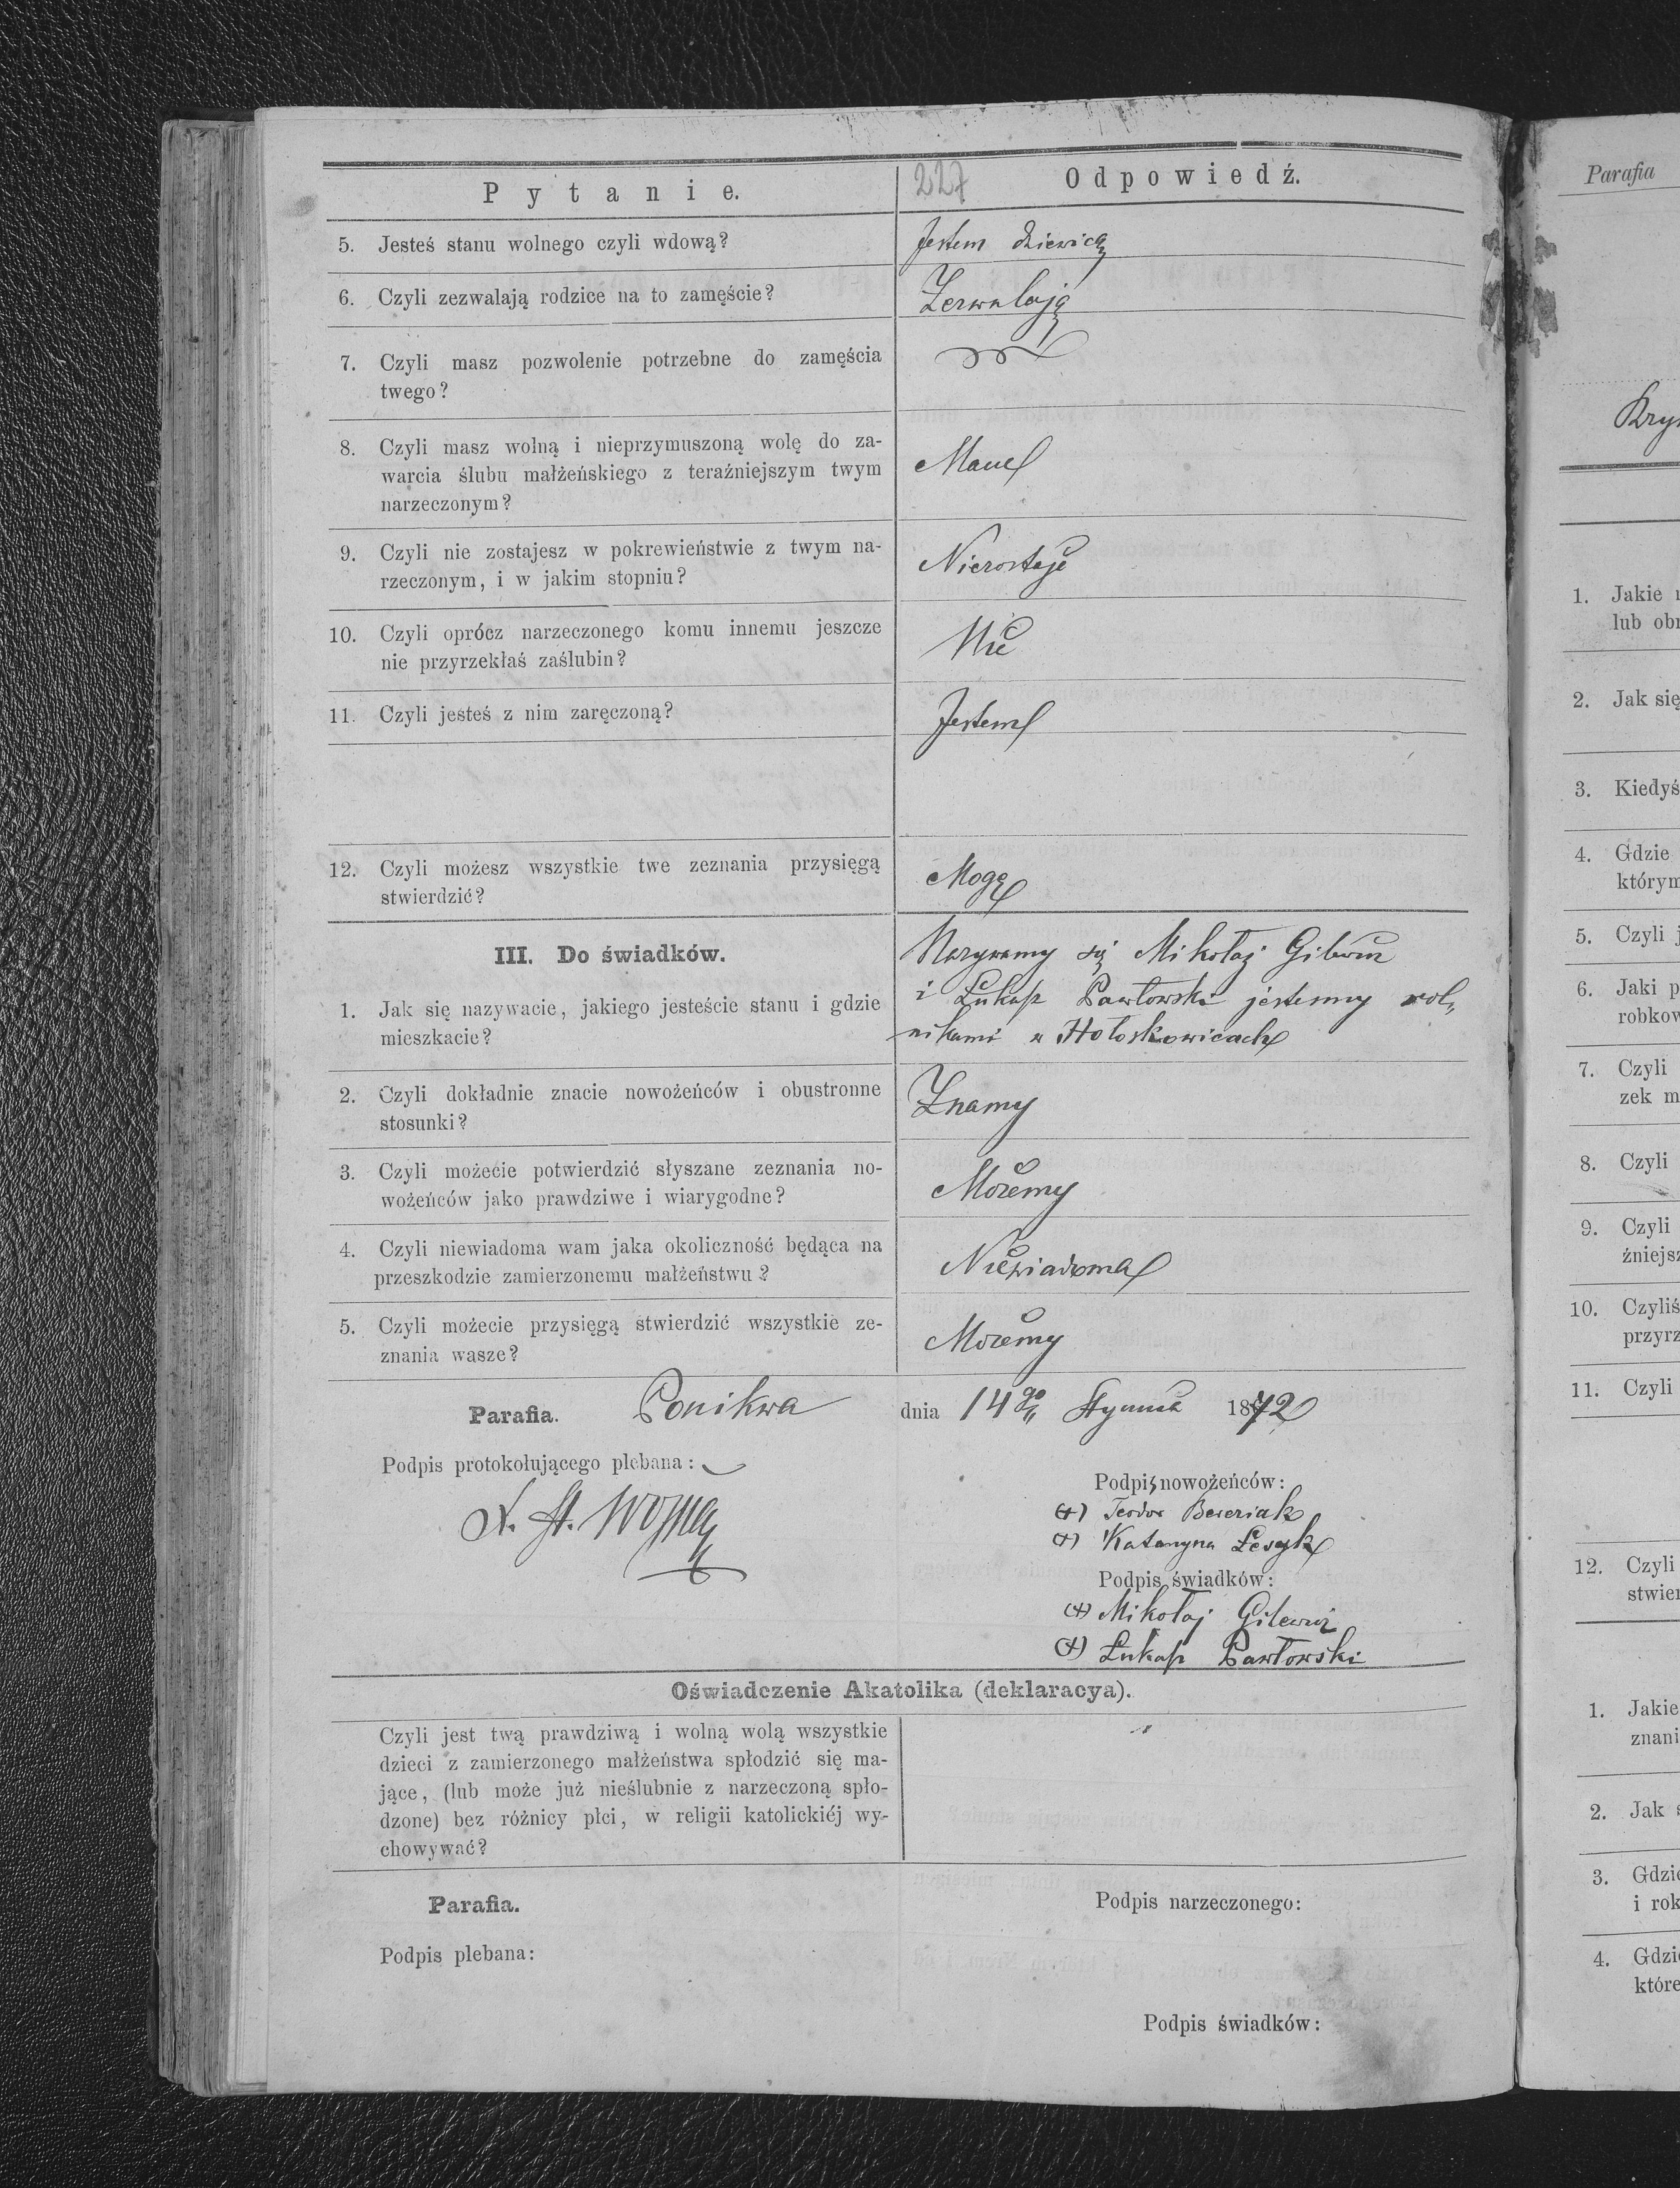 Pytanie.
227
Odpowiedź.
5. Jesteś stanu wolnego czyli wdową?
Jestem dziewicą
6. Czyli zezwalają rodzice na to zamęście?
Zezwalają
7. Czyli masz pozwolenie potrzebne do zamęścia
twego?
8. Czyli masz wolną i nieprzymuszoną wolę do za-
warcia ślubu małżeńskiego z teraźniejszym twym
narzeczonym?
9. Czyli nie zostajesz w pokrewieństwie z twym na-
rzeczonym, i w jakim stopniu?
Niezostaję
10. Czyli oprócz narzeczonego komu innemu jeszcze
nie przyrzekłaś zaślubin?
Nie
11. Czyli jesteś z nim zaręczoną?
Jestem
12. Czyli możesz wszystkie twe zeznania przysięgą
stwierdzić?
Mogę
III. Do świadków.
1. Jak się nazywacie, jakiego jesteście stanu i gdzie
mieszkacie?
Nazywamy się Mikołaj
i Łukasz Pawłowski jestesmy rol„
nikami w Hołoskowicach
2. Czyli dokładnie znacie nowożeńców i obustronne
stosunki?
Znamy
3. Czyli możecie potwierdzić słyszane zeznania no-
wożeńców jako prawdziwe i wiarygodne?
Możemy
4. Czyli niewiadoma wam jaka okoliczność będąca na
przeszkodzie zamierzonemu małżeństwu?
Niewiadoma
5. Czyli możecie przysięgą stwierdzić wszystkie ze-
znania wasze?
Możemy
Parafia. Ponikwa
dnia 14go 1872
Podpis protokołującego plebana:
X. St.
Podpis nowożeńców:
(+) Teodor
(+) Katarzyna
Podpis świadków:
(+) Mikołaj
(+) Łukasz Pawłowski
Oświadczenie Akatolika (deklaracya).
Czyli jest twą prawdziwą i wolną wolą wszystkie
dzieci z zamierzonego małżeństwa spłodzić się ma-
jące, (lub może już nieślubnie z narzeczoną spło-
dzone) bez różnicy płci, w religii katolickiéj wy-
chowywać?
Parafia.
Podpis narzeczonego:
Podpis plebana:
Podpis świadków:
Parafia
1. Jakie
lub
2. Jak się
3. Kiedyś
4. Gdzie
którym
5. Czyli
6. Jaki
7. Czyli
8. Czyli
9. Czyli
10.
11. Czyli
12. Czyli
1. Jakie
2. Jak
3.
i rok
4.
które